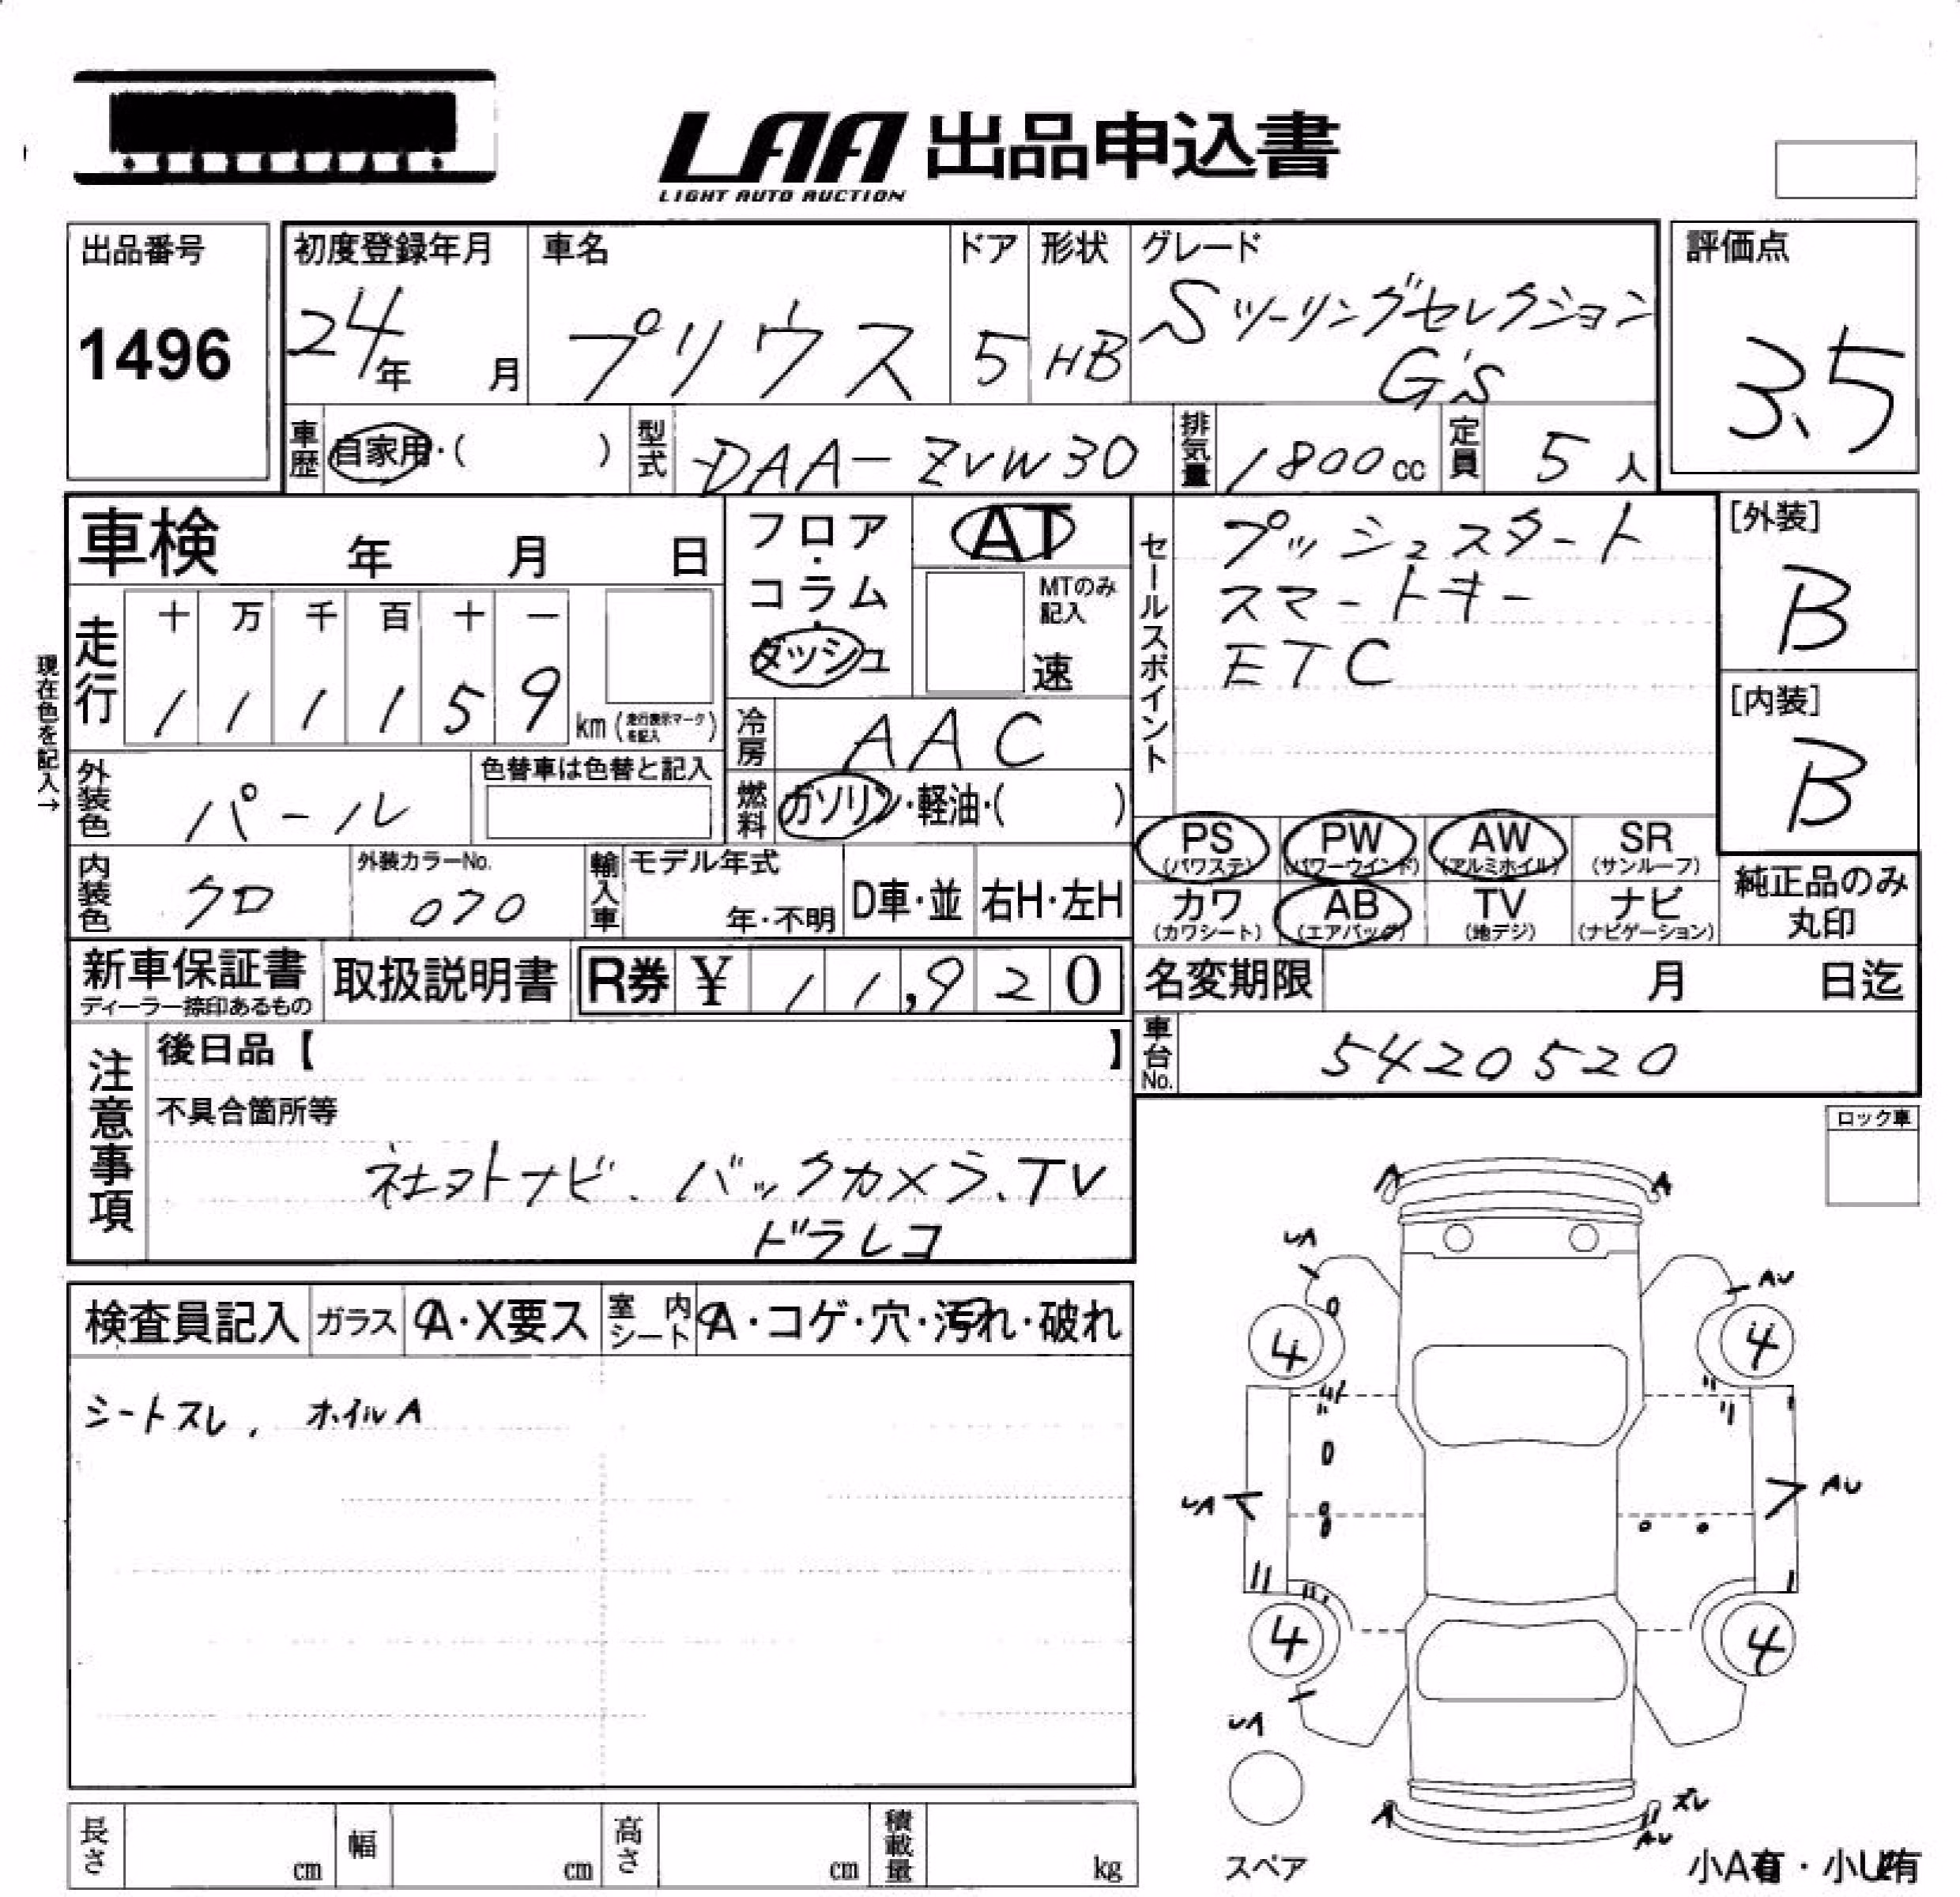 LAA 出品申込書
LIGHT AUTO AUCTION
出品番号
1496
初度登録年月
24年 月
車名
プリウス
ドア
5
形状
HB
グレード
Sツーリングセレクション
G's
評価点
3.5
車歴
自家用・( )
型式
DAA-ZVW30
排気量
1800cc
定員
5人
車検 年 月 日
フロア・コラム・ダッシュ
AT
MTのみ記入
速
セールスポイント
プッシュスタート
スマートキー
ETC
[外装]
B
[内装]
B
現在色を記入→
走行
十 万 千 百 十 一
1 1 1 1 5 9 km (走行表示マークを記入)
冷房
AAC
外装色
パール
色替車は色替と記入
燃料
ガソリン・軽油・( )
PS (パワステ)
PW (パワーウインド)
AW (アルミホイル)
SR (サンルーフ)
カワ (カワシート)
AB (エアバッグ)
TV (地デジ)
ナビ (ナビゲーション)
純正品のみ
丸印
内装色
クロ
外装カラーNo.
070
輸入車
モデル年式
年・不明
D車・並
右H・左H
新車保証書
ディーラー捺印あるもの
取扱説明書
R券 ¥ 11,920
名変期限 月 日迄
車台No.
5420520
注意事項
後日品【 】
不具合箇所等
社外ナビ、バックカメラ、TV
ドラレコ
ロック車
検査員記入
ガラス
A・X要ス
室内シート
A・コゲ・穴・汚れ・破れ
シートスレ、ホイルA
A
A
UA
AU
4
4
UA
AU
4
4
UA
A
スレ
AU
スペア
小A有・小U有
長さ cm
幅 cm
高さ cm
積載量 kg